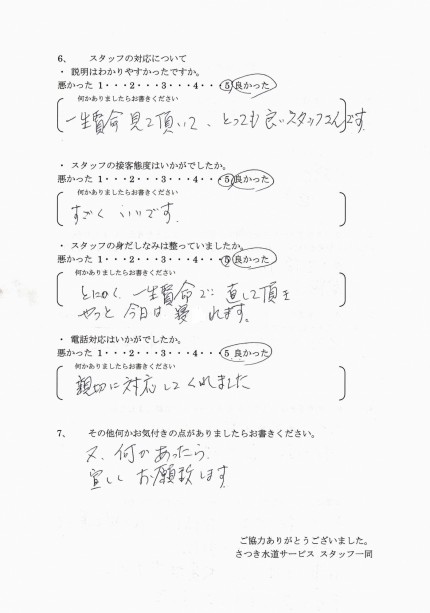 6、　スタッフの対応について
・ 説明はわかりやすかったですか。
悪かった 1・・・2・・・3・・・4・・・5 良かった
何かありましたらお書きください
一生懸命 見て頂いて、とっても良いスタッフさんです
・ スタッフの接客態度はいかがでしたか。
悪かった 1・・・2・・・3・・・4・・・5 良かった
何かありましたらお書きください
すごく いいです。
・ スタッフの身だしなみは整っていましたか。
悪かった 1・・・2・・・3・・・4・・・5 良かった
何かありましたらお書きください
とにかく 一生懸命で 直して頂き
やっと 今日は 寝 れます。
・ 電話対応はいかがでしたか。
悪かった 1・・・2・・・3・・・4・・・5 良かった
何かありましたらお書きください
親切に対応してくれました
7、　その他何かお気付きの点がありましたらお書きください。
又、何かあったら、
宜しく お願い致します
ご協力ありがとうございました。
さつき水道サービス スタッフ一同